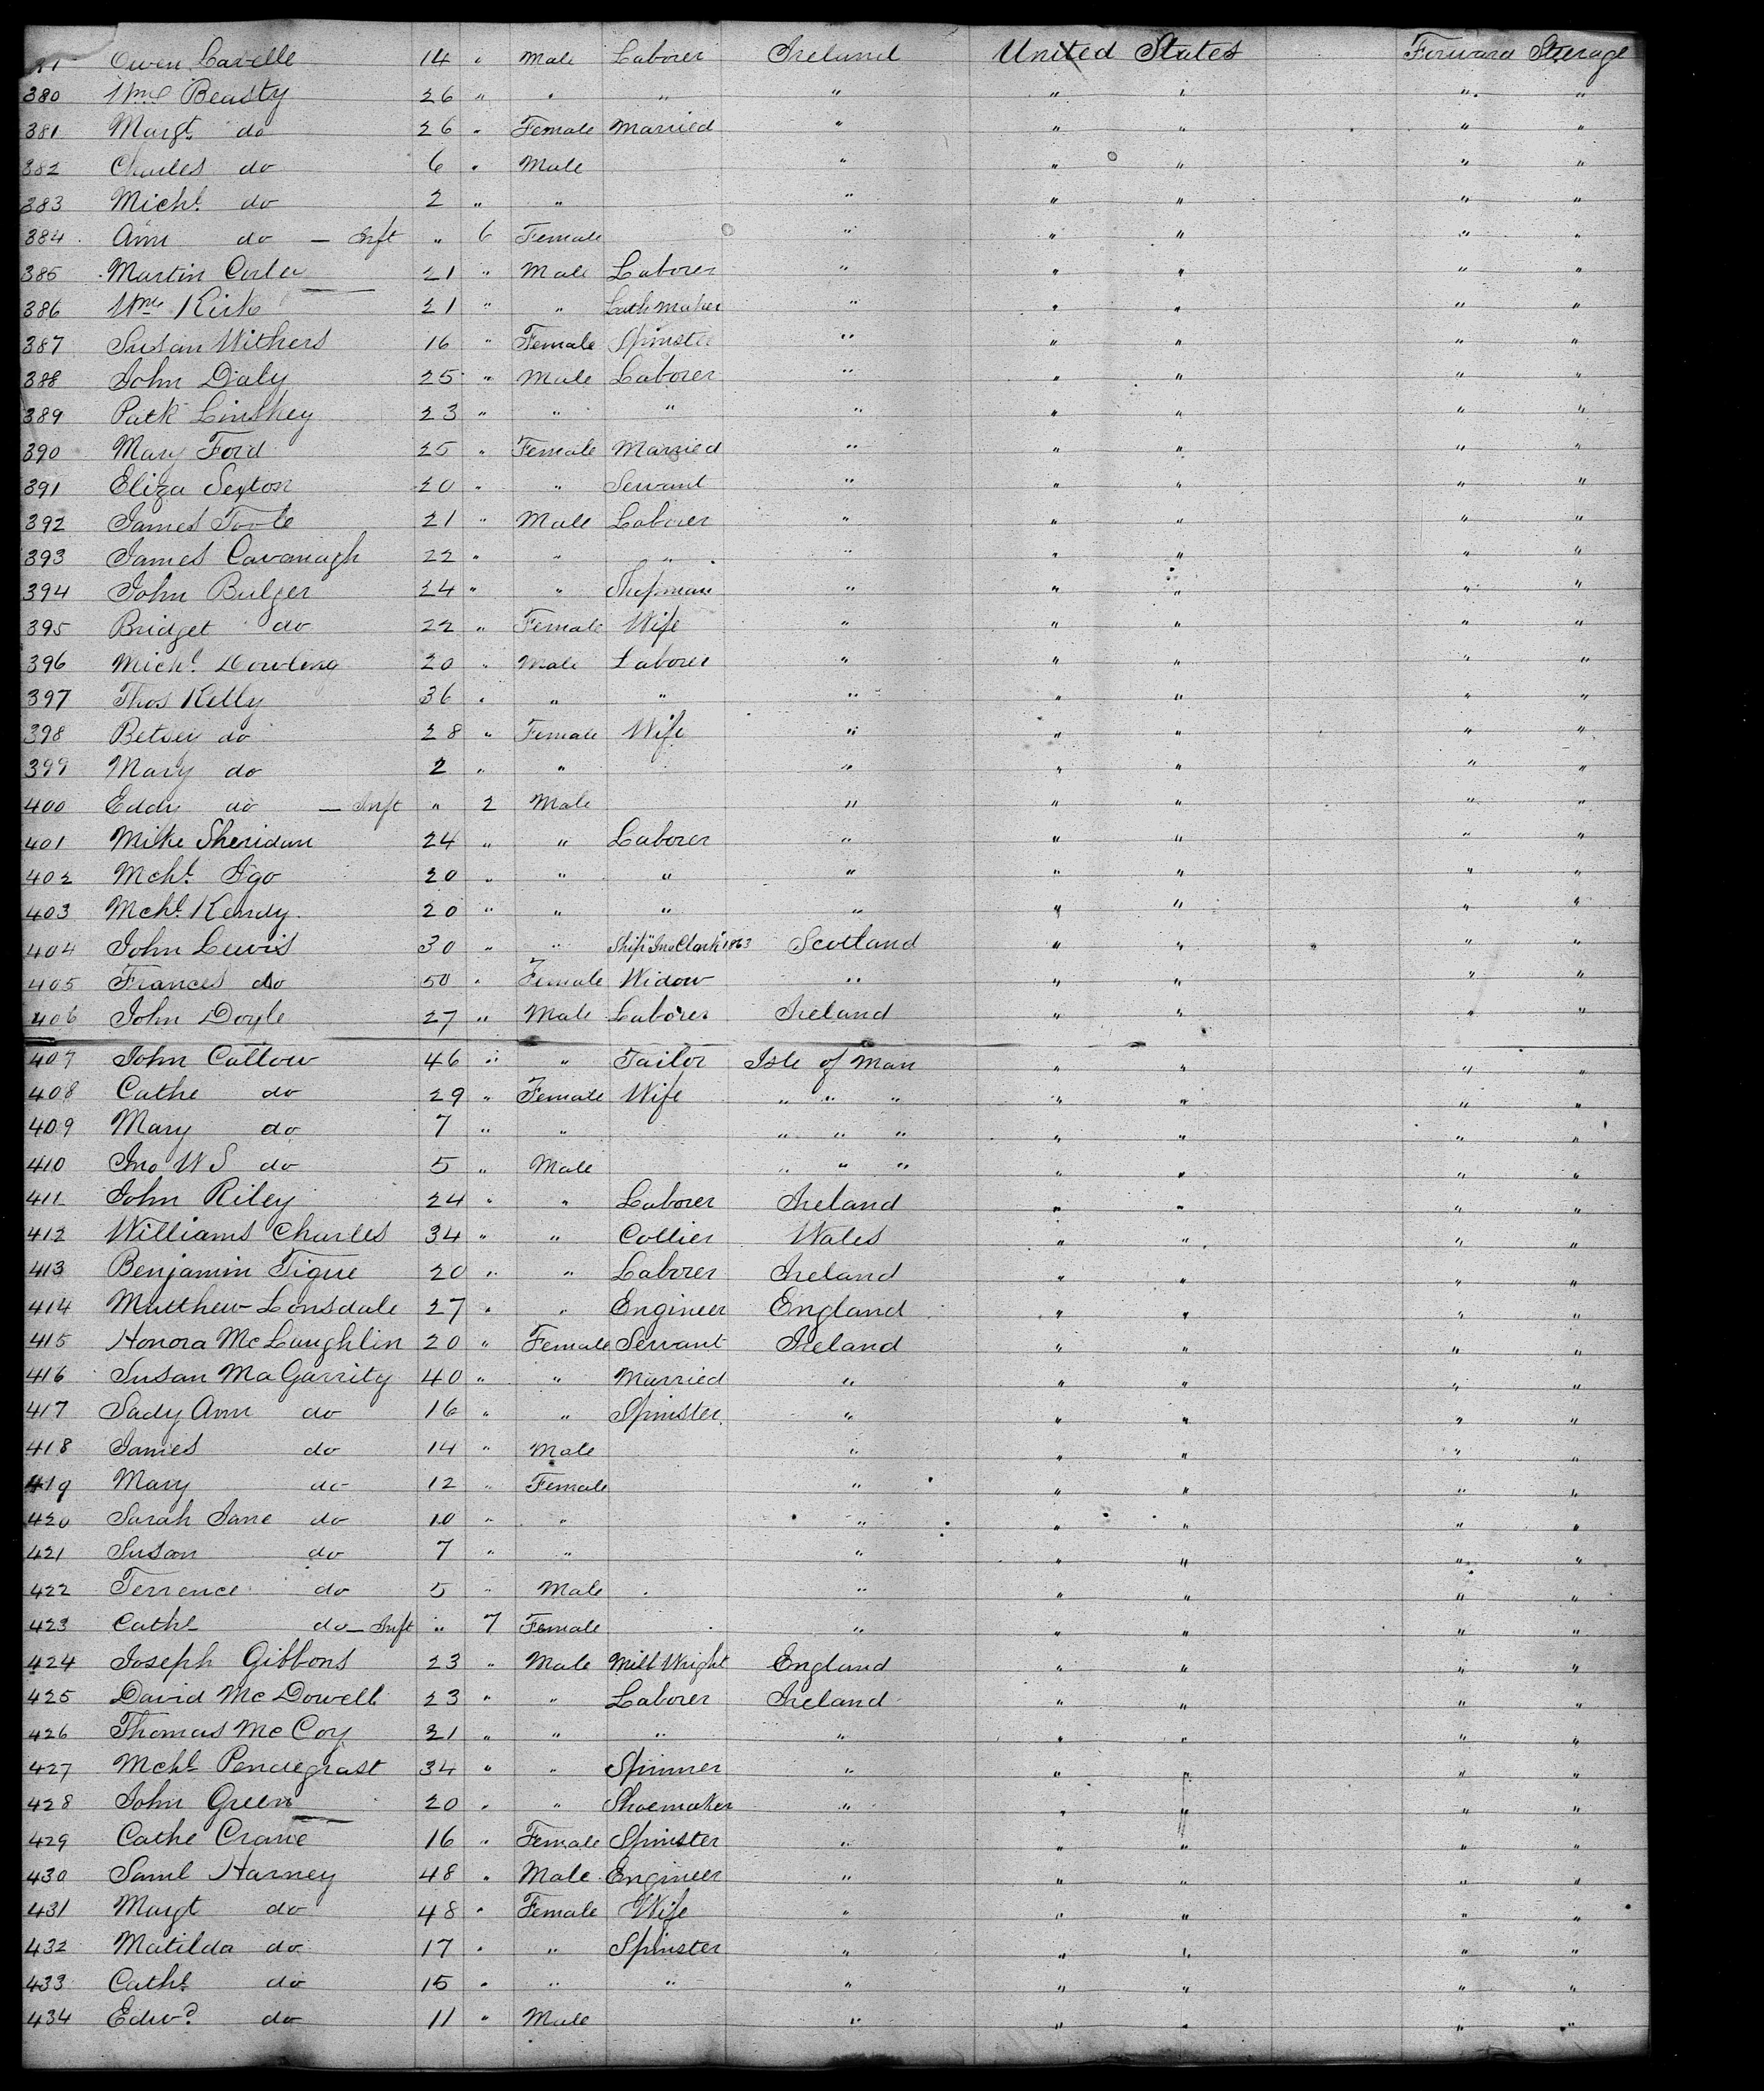 Owen Lavelle 14 " Male Laborer Ireland United States Forward Sterage
380 Wm Beasty 26 " " " " " " " "
381 Margt. do 26 " Female Married " " " " "
382 Charles do 6 " Male " " " " "
383 Michl. do 2 " " " " " " "
384 Ann do — Inft " 6 Female " " " " "
385 Martin 21 " Male Laborer " " " " "
386 Wm Kirk 21 " " Lath Maker " " " " "
387 Susan Withers 16 " Female Spinster " " " " "
388 John Daly 25 " Male Laborer " " " " "
389 Patk Linskey 23 " " " " " " " "
390 Mary Ford 25 " Female Married " " " " "
391 Eliza Sexton 20 " " Servant " " " " "
392 James Toole 21 " Male Laborer " " " " "
393 James Cavanagh 22 " " " " " " " "
394 John Bulger 24 " " Shopman " " " " "
395 Bridget do 22 " Female Wife " " " " "
396 Michl. Dowling 20 " Male Laborer " " " " "
397 Thos Kelly 36 " " " " " " " "
398 Betsey do 28 " Female Wife " " " " "
399 Mary do 2 " " " " " " "
400 Eddy do — Inft " 2 Male " " " " "
401 Mike Sheridan 24 " " Laborer " " " " "
402 Mchl. Igo 20 " " " " " " " "
403 Mchl. Kendy 20 " " " " " " " "
404 John Lewis 30 " " Ship "Jno Clark" 1863 Scotland " " " "
405 Frances do 50 " Female Widow " " " " "
406 John Doyle 27 " Male Laborer Ireland " " " "
407 John Callow 46 " " Tailor Isle of Man " " " "
408 Cathe do 29 " Female Wife " " " " " " "
409 Mary do 7 " " " " " " " " "
410 Jno W S do 5 " Male " " " " " " "
411 John Riley 24 " " Laborer Ireland " " " "
412 Williams Charles 34 " " Collier Wales " " " "
413 Benjamin Tigue 20 " " Laborer Ireland " " " "
414 Matthew Lonsdale 27 " " Engineer England " " " "
415 Honora McLaughlin 20 " Female Servant Ireland " " " "
416 Susan MaGarrity 40 " " Married " " " " "
417 Sady Ann do 16 " " Spinster " " " " "
418 James do 14 " Male " " " " "
419 Mary do 12 " Female " " " " "
420 Sarah Jane do 10 " " " " " " "
421 Susan do 7 " " " " " " "
422 Terrence do 5 " Male " " " " "
423 Cathe do — Inft " 7 Female " " " " "
424 Joseph Gibbons 23 " Male Mill Wright England " " " "
425 David McDowell 23 " " Laborer Ireland " " " "
426 Thomas McCoy 21 " " " " " " " "
427 Mchl. Pendegrast 34 " " Spinner " " " " "
428 John Green 20 " " Shoemaker " " " " "
429 Cathe Crane 16 " Female Spinster " " " " "
430 Saml Harney 48 " Male Engineer " " " " "
431 Margt do 48 " Female Wife " " " " "
432 Matilda do 17 " " Spinster " " " " "
433 Cathe do 15 " " " " " " " "
434 Edwd. do 11 " Male " " " " "